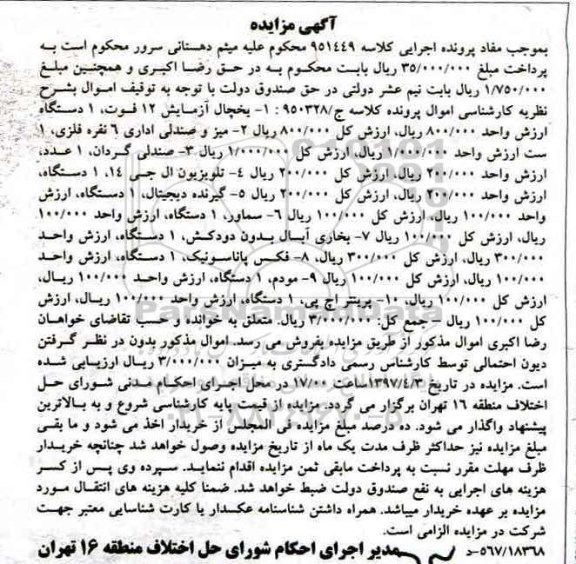 آگهی مزایده
بموجب مفاد پرونده اجرایی کلاسه ۹۵۱۴۴۹ محکوم علیه میثم دهستانی سرور محکوم است به
پرداخت مبلغ ۳۵/۰۰۰/۰۰۰ ریال بابت محکوم به در حق رضا اکبری و همچنین مبلغ
۱/۷۵۰/۰۰۰ ریال بابت نیم عشر دولتی در حق صندوق دولت با توجه به توقیف اموال بشرح
نظریه کارشناسی اموال پرونده کلاسه ج/۹۵۰۳۲۸ : ۱- یخچال آزمایش ۱۲ فوت، ۱ دستگاه
ارزش واحد ۸۰۰/۰۰۰ ریال، ارزش کل ۸۰۰/۰۰۰ ریال ۲- میز و صندلی اداری ۶ نفره فلزی، ۱
ست ارزش واحد ۱/۰۰۰/۰۰۰ ریال، ارزش کل ۱/۰۰۰/۰۰۰ ریال ۳- صندلی گردان، ۱ عدد،
ارزش واحد ۲۰۰/۰۰۰ ریال، ارزش کل ۲۰۰/۰۰۰ ریال ۴- تلویزیون ال جی ۱۴، ۱ دستگاه،
ارزش واحد ۲۰۰/۰۰۰ ریال، ارزش کل ۲۰۰/۰۰۰ ریال ۵- گیرنده دیجیتال، ۱ دستگاه، ارزش
واحد ۱۰۰/۰۰۰ ریال، ارزش کل ۱۰۰/۰۰۰ ریال ۶- سماور، ۱ دستگاه، ارزش واحد ۱۰۰/۰۰۰
ریال، ارزش کل ۱۰۰/۰۰۰ ریال ۷- بخاری آبسال بدون دودکش، ۱ دستگاه، ارزش واحد
۳۰۰/۰۰۰ ریال، ارزش کل ۳۰۰/۰۰۰ ریال، ۸- فکس پاناسونیک، ۱ دستگاه، ارزش واحد
۱۰۰/۰۰۰ ریال، ارزش کل ۱۰۰/۰۰۰ ریال ۹- مودم، ۱ دستگاه، ارزش واحد ۱۰۰/۰۰۰ ریال،
ارزش کل ۱۰۰/۰۰۰ ریال، ۱۰- پرینتر اچ پی، ۱ دستگاه، ارزش واحد ۱۰۰/۰۰۰ ریال، ارزش
کل ۱۰۰/۰۰۰ ریال - جمع کل: ۳/۰۰۰/۰۰۰ ریال، متعلق به خوانده و حسب تقاضای خواهان
رضا اکبری اموال مذکور از طریق مزایده بفروش می رسد. اموال مذکور بدون در نظر گرفتن
دیون احتمالی توسط کارشناس رسمی دادگستری به میزان ۳/۰۰۰/۰۰۰ ریال ارزیابی شده
است. مزایده در تاریخ ۱۳۹۷/۴/۳ ساعت ۱۷/۰۰ در محل اجرای احکام مدنی شورای حل
اختلاف منطقه ۱۶ تهران برگزار می گردد. مزایده از قیمت پایه کارشناسی شروع و به بالاترین
پیشنهاد واگذار می شود. ده درصد مبلغ مزایده فی المجلس از خریدار اخذ می شود و ما بقی
مبلغ مزایده نیز حداکثر ظرف مدت یک ماه از تاریخ مزایده وصول خواهد شد چنانچه خریدار
ظرف مهلت مقرر نسبت به پرداخت مابقی ثمن مزایده اقدام ننماید. سپرده وی پس از کسر
هزینه های اجرایی به نفع صندوق دولت ضبط خواهد شد. ضمنا کلیه هزینه های انتقال مورد
مزایده بر عهده خریدار میباشد. همراه داشتن شناسنامه عکسدار یا کارت شناسایی معتبر جهت
شرکت در مزایده الزامی است.
۵۶۷/۱۸۳۶۸-د
مدیر اجرای احکام شورای حل اختلاف منطقه ۱۶ تهران